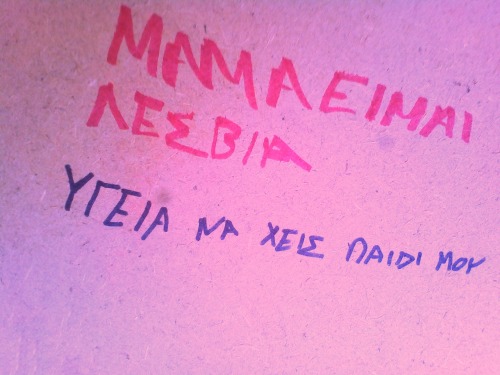 ΜΑΜΑ ΕΙΜΑΙ
ΛΕΣΒΙΑ
ΥΓΕΙΑ ΝΑ ΧΕΙΣ ΠΑΙΔΙ ΜΟΥ